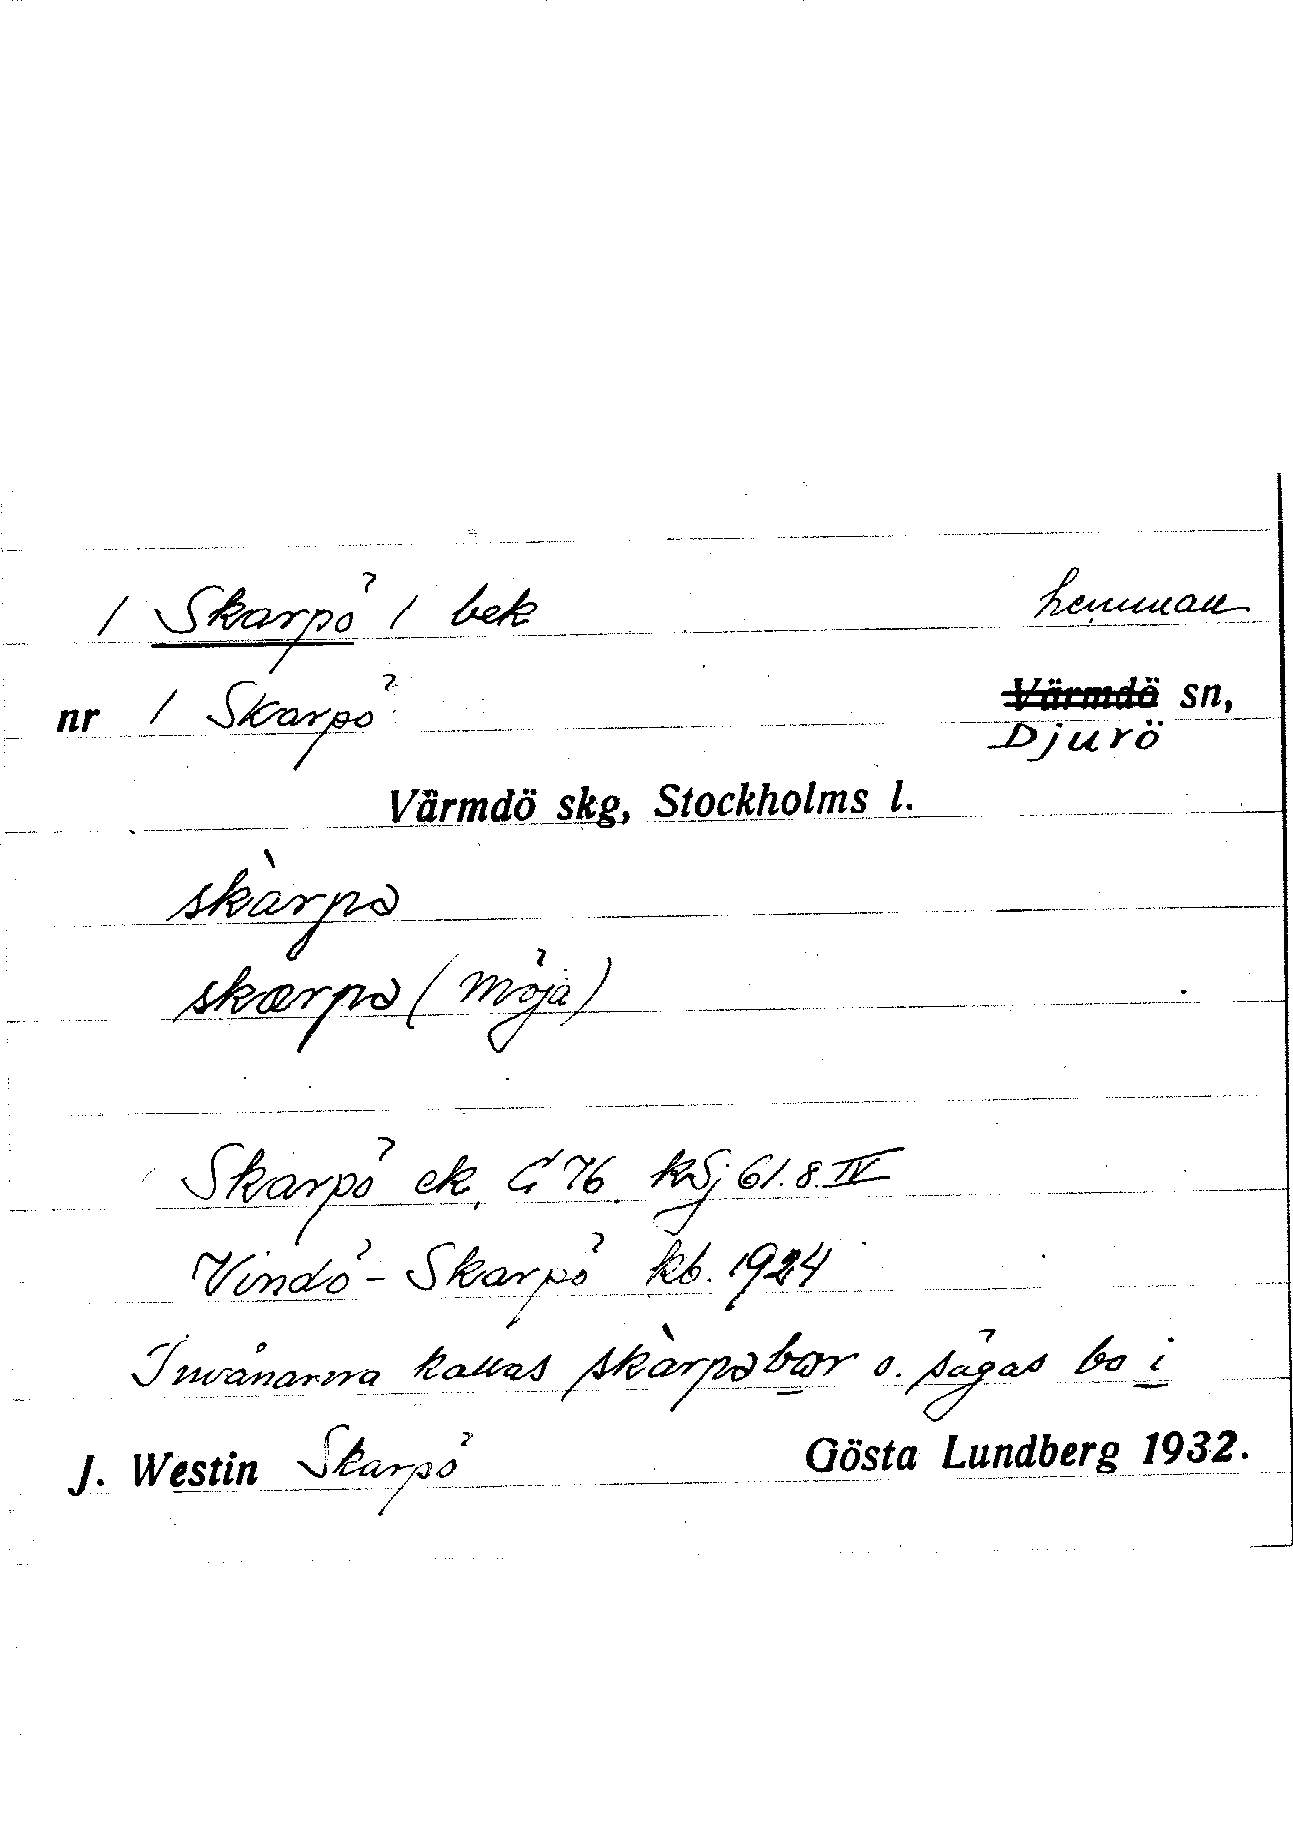 / Skarpö / bek hemman
nr / Skarpö Värmdö sn,
Djurö
Värmdö skg, Stockholms l.
skàrpə
skærpə (Möja)
Skarpö ek, G 76. kSj 61.8.IV
Vindö - Skarpö kb. 1924
Invånarna kallas skàrpəbor o. sägas bo i
J. Westin Skarpö Gösta Lundberg 1932.